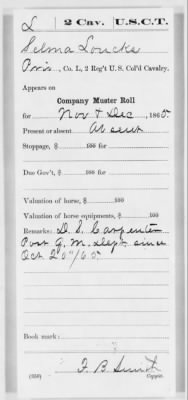 L | 2 Cav. | U.S.C.T.
Selma Loucks
Priv., Co. L, 2 Reg't U. S. Col'd Cavalry.
Appears on
Company Muster Roll
for Nov & Dec, 1865.
Present or absent Absent
Stoppage, $ 100 for
Due Gov't, $ 100 for
Valuation of horse, $ 100
Valuation of horse equipments, $ 100
Remarks: D. S. Carpenter
Post Q. M. Dept since
Oct 20"/65
Book mark:
(358) F. B. Smith
Copyist.